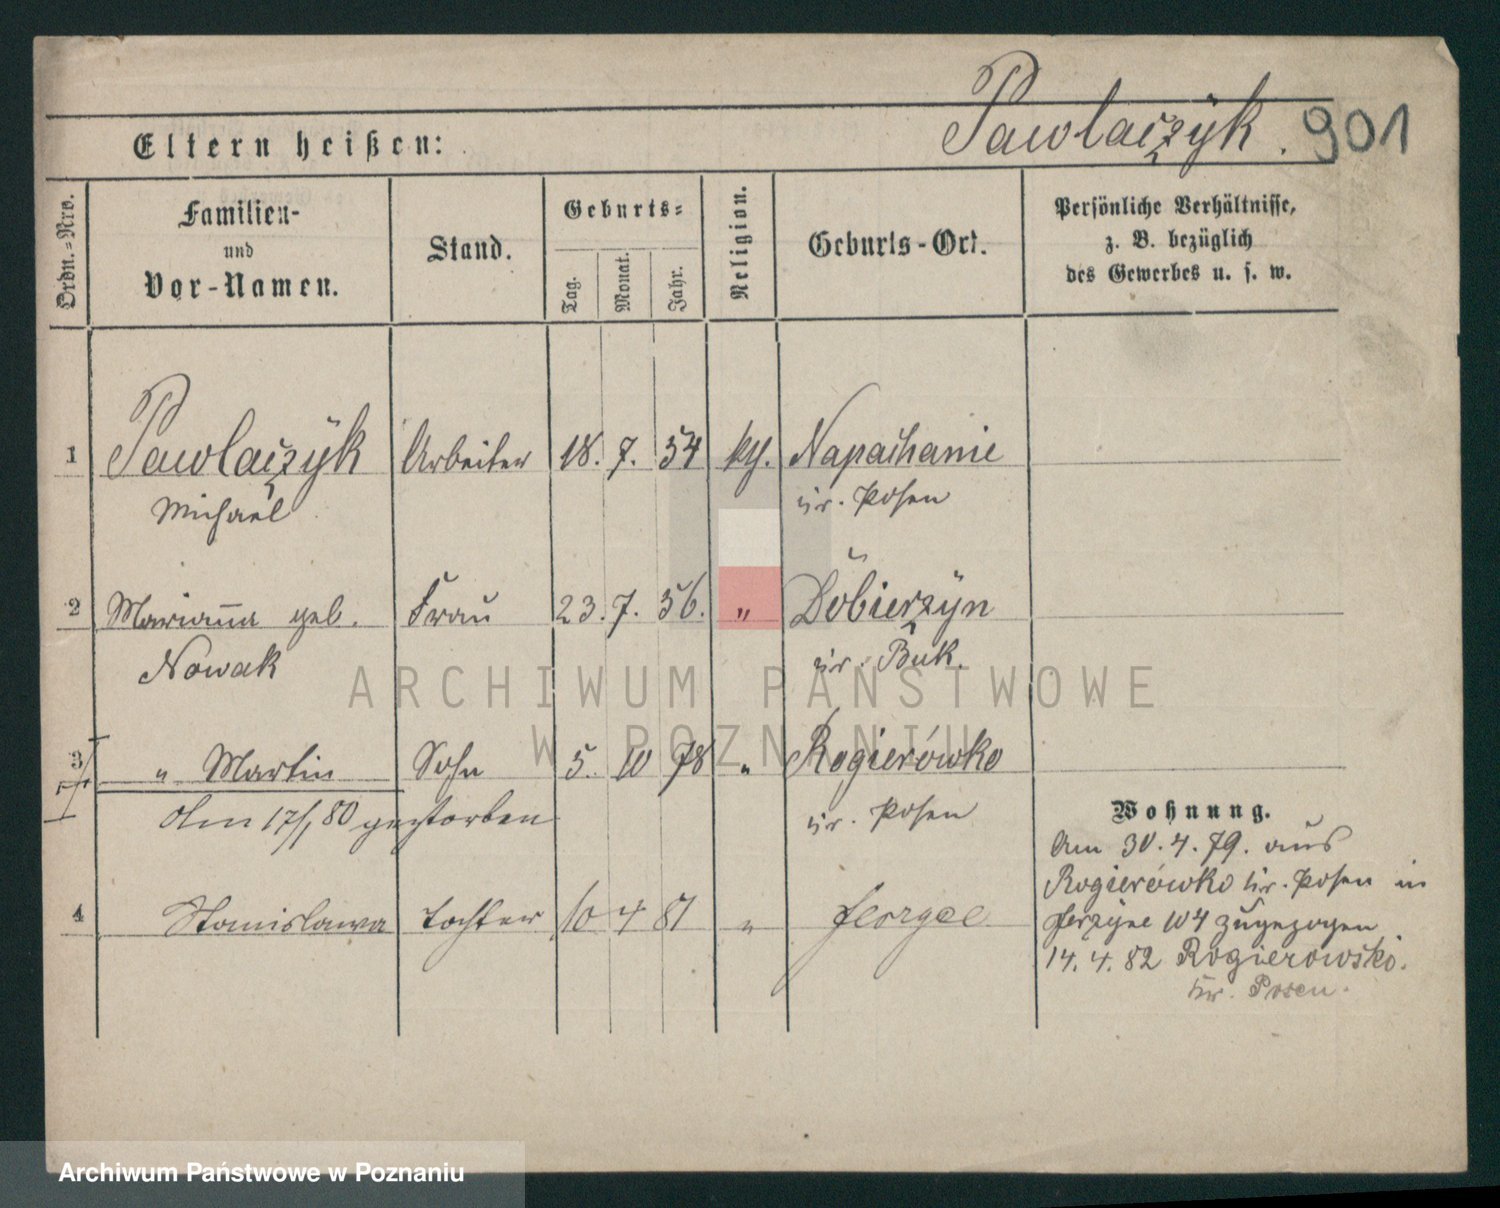 Pawlaczÿk. 901
Eltern heißen:
Ordn.-Nro.
Familien-
und
Vor-Namen.
Stand.
Geburts-
Tag.
Monat.
Jahr.
Religion.
Geburts-Ort.
Persönliche Verhältnisse,
z. B. bezüglich
des Gewerbes u. s. w.
1 Pawlaczÿk Arbeiter 18. 7. 54 kth. Napachanie
Michael Kr. Posen
2 Marianna geb. Frau 23. 7. 56. " Dobierzÿn
Nowak Kr. Buk.
3 " Martin Sohn 5. 10 78 " Rogierówko
Am 17/1 80 gestorben Kr. Posen
4 Stanislawa Tochter 10 4 81 "
Wohnung.
Am 30. 4. 79. aus
Rogierówko Kr. Posen in
104 zugezogen
14. 4. 82 Rogierowsko.
Kr. Posen.
ARCHIWUM PAŃSTWOWE
W POZNANIU
Archiwum Państwowe w Poznaniu